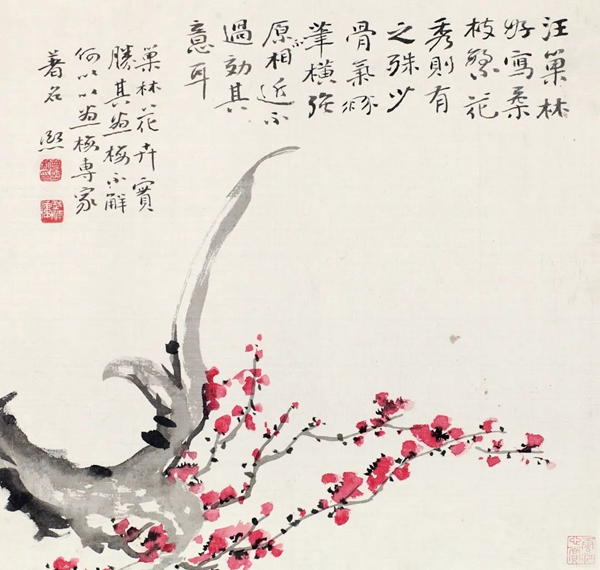 汪巢林
好寫柔
枝繁花
秀則有
之殊少
骨氣
筆橫
原相近不
過効其
意耳
巢林花卉實
勝其畫梅不解
何以以畫梅專家
著名 熙